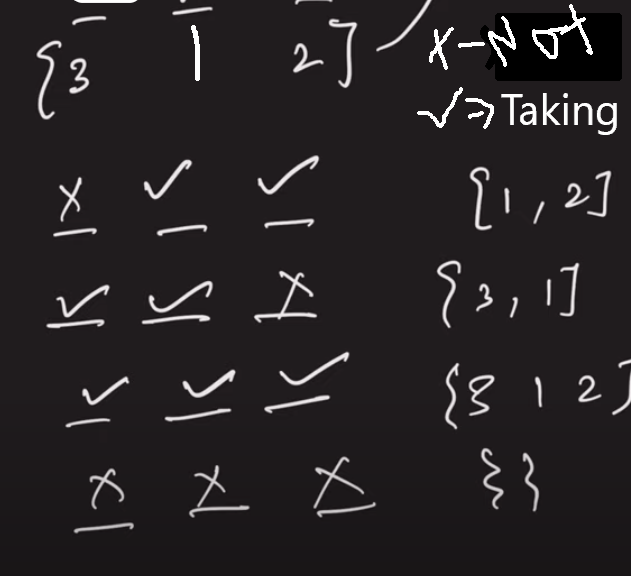 {3 1 2] X-Not
✓⇒ Taking
X ✓ ✓ {1, 2]
✓ ✓ X {3, 1]
✓ ✓ ✓ {3 1 2]
X X X {}